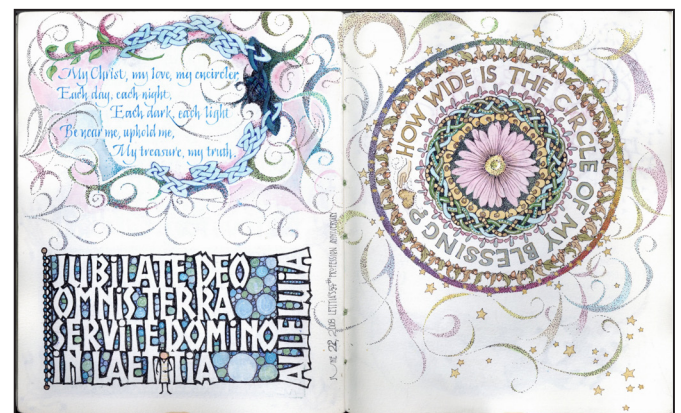 My Christ, my love, my encircler,
Each day, each night,
Each dark, each light
Be near me, uphold me,
My treasure, my truth.
JUBILATE DEO
OMNIS TERRA
SERVITE DOMINO
IN LAETITIA
ALLELUIA
22, 2008
HOW WIDE IS THE CIRCLE OF MY BLESSING?